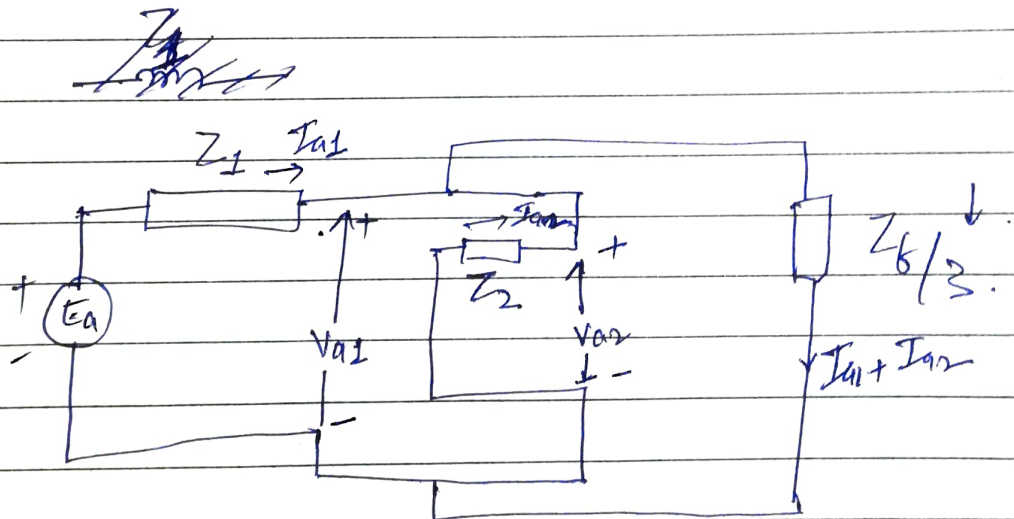 Z1 Ia1
+ Ia2
+
Z2 Zf/3.
+
Ea
-
Va1 Va2
- Ia1 + Ia2
-